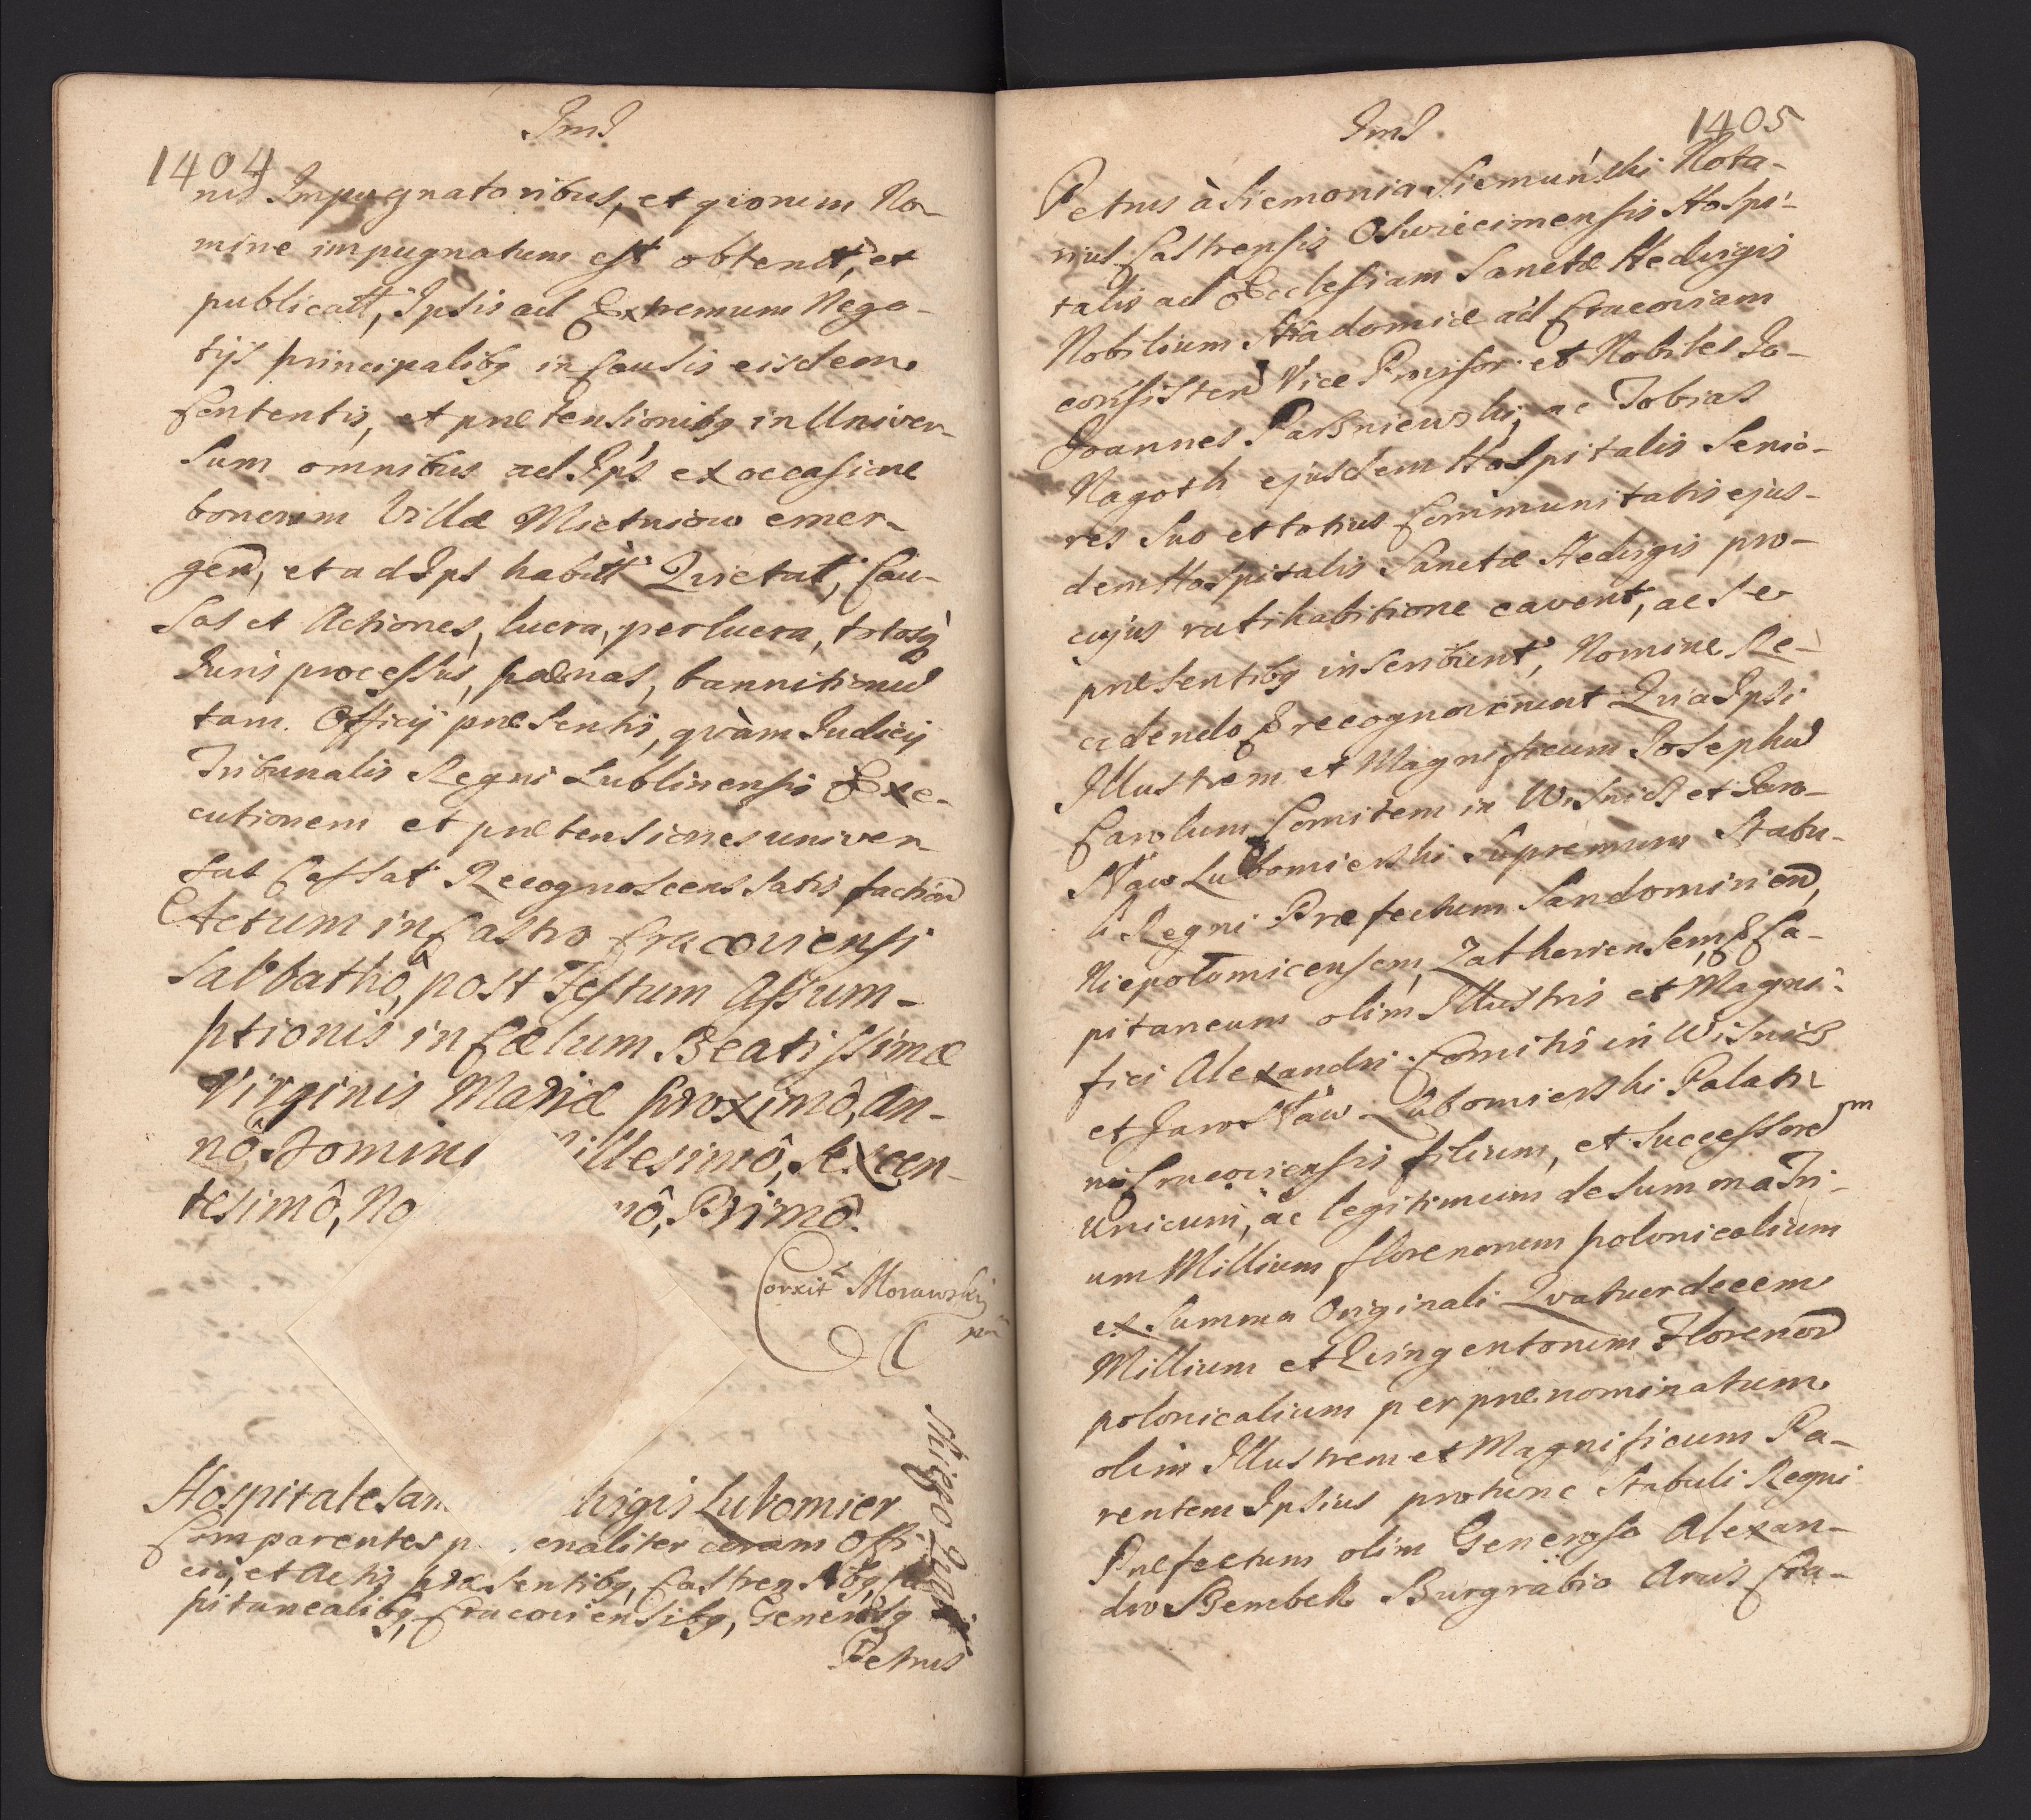 Jmd
1404
nis Impugnatoribus, et qiorum No-
mine impugnatum est obtent, et
publicatt, Ipsis ad Extremum Nego-
tijs principalibq in Causis eisdem
Contentis, et prætensionibq in Univer-
sum omnibus ad Ips ex occasione
bonorum Villæ Mietniow emer-
gen, et ad Ips habitt Quietat, Cau-
sas et Actiones, lucra, perlucra, totosq
Juris processus, pœnas, bannitiones
tam Officij præsentis, qvàm Judicij
Tribunalis Regni Lublinensis Exe-
cutionem et prætensiones univer-
sas Cassat Recognoscens satis faction
Actum in Castro Cracoviensi
Sabbathô, post Festum Assum-
ptionis in Cœlum Beatissimæ
Virginis Mariæ proximô, An-
nô Domini illesimô, Sexcen-
tesimô, No nô, Primô.
Corxit Morawski
mp
Hospitale San wigis Lubomier
Comparentes p enaliter coram Offi-
cio, et Actis præsentibq, Castrensibq, Ca-
pitanealibq, Cracoviensibq, Generosq
Petrus
Jmd
1405
Petrus à Siemonia Siemuński Nota-
rius Castrensis Oswiecimensis Hospi-
talis ad Ecclesiam Sanctæ Hedvigis
Nobilium Stradomiæ ad Cracoviam
consisten Vice Provisor et Nobiles Jo-
Joannes Parsniewski, ac Tobias
Nagoth ejusdem Hospitalis Senio-
res suo et totius Communitatis ejus-
dem Hospitalis Sanctæ Hedvigis pro-
cujus ratihabitione cavent, ac se
præsentibq inscribunt, Nomine Re-
cedendo & recognoverunt Quia Ipsi
Illustrem et Magnificum Josephum
Carolum Comitem in Wisnicz et Jaro-
sław Lubomierski Supremum Stabu-
li Regni Præfectum Sandomirien,
Niepolomicensem, Zathoriensem, & Ca-
pitaneum olim Illustris et Magni-
fici Alexandri Comitis in Wisnicz
et Jarosław Lubomierski Palati-
ni Cracoviensis filium, et Successorem
unicum, ac legitimum de summa Tri-
um Millium florenorum polonicalium
ex Summa Originali Qvatuordecem
Millium et Qvingentorum Florenor
polonicalium per prænominatum
olim Illustrem et Magnificum Pa-
rentem Ipsius protunc Stabuli Regni
Præfectum olim Generoso Alexan-
dro Bembek Burgrabio Arcis Cra-